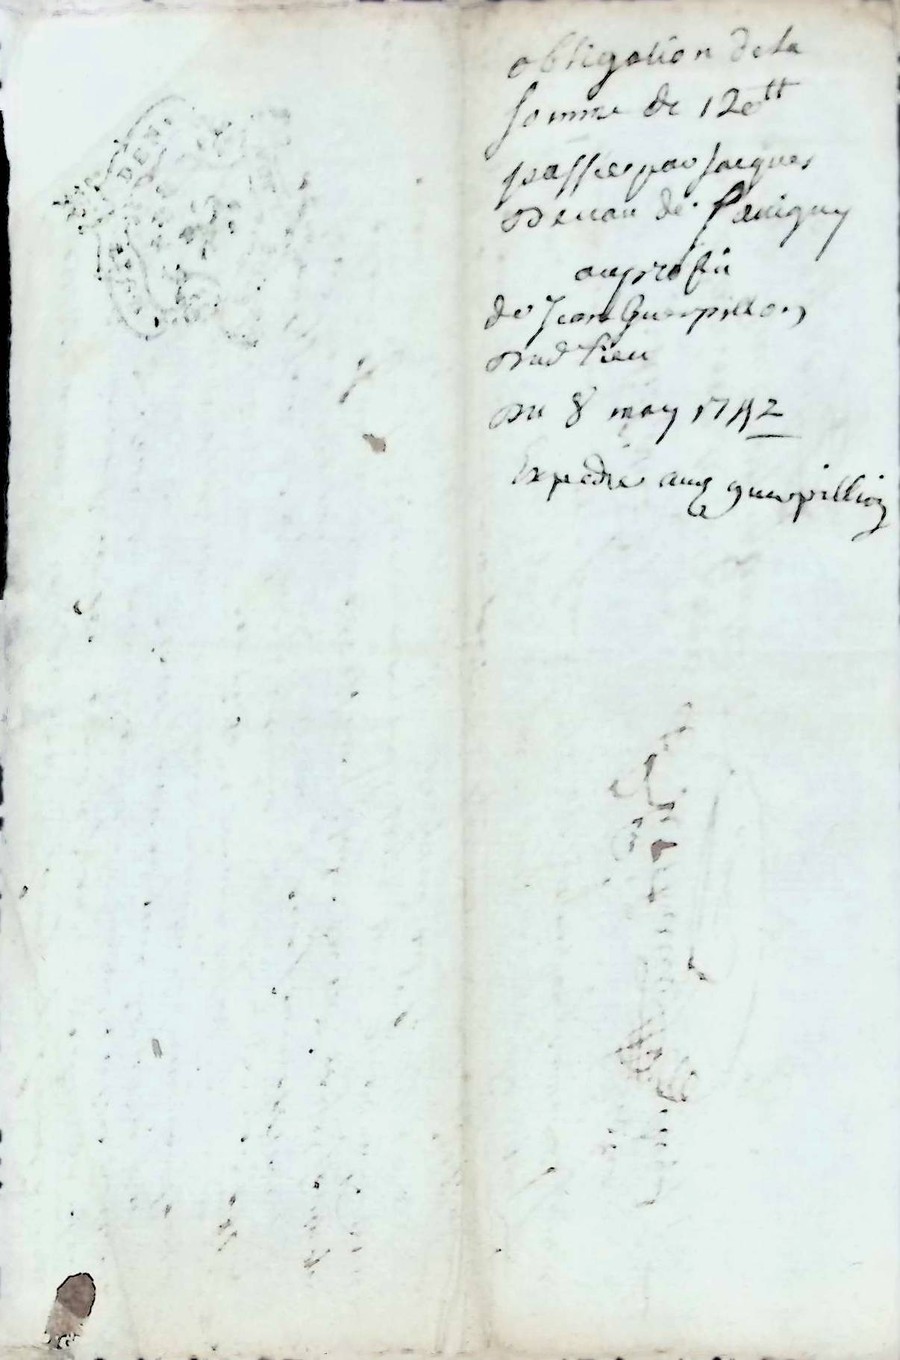 DEN.
obligation de la
somme de 120tt
passée par Jacques
de Savigny
au profit
de Jean Guerpillon
dud lieu
du 8 may 1742
Expedié aud guerpillion